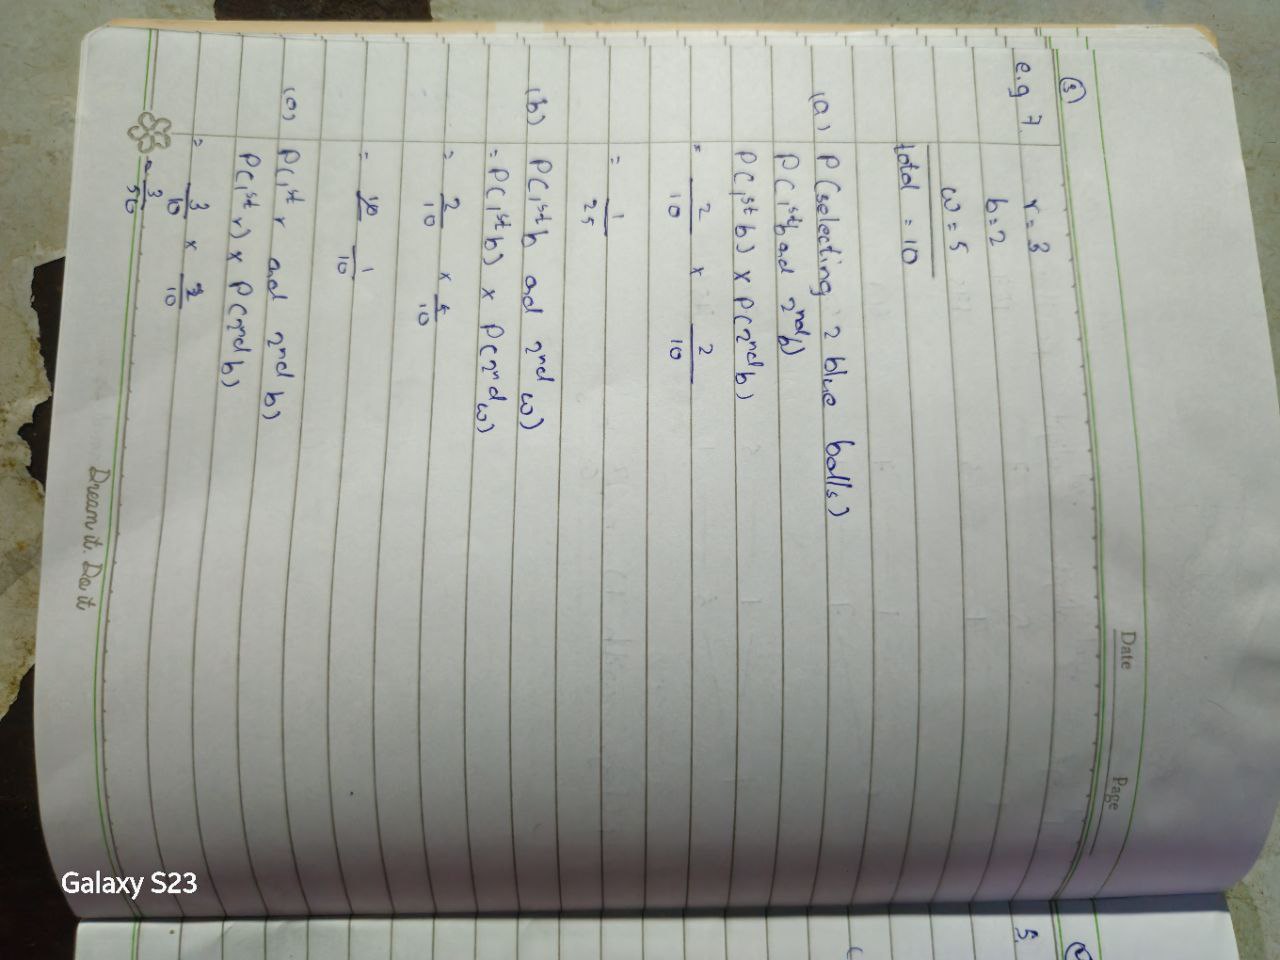 Date
Page
(3)
e.g 7. r = 3
b = 2
w = 5
total = 10
(a) P(selecting 2 blue balls)
P(1st b ad 2nd b)
P(1st b) x P(2nd b)
= 2/10 x 2/10
= 1/25
(b) P(1st b ad 2nd w)
= P(1st b) x P(2nd w)
= 2/10 x 5/10
= 1/10
(c) P(1st r and 2nd b)
P(1st r) x P(2nd b)
= 3/10 x 2/10
= 3/50
Dream it. Do it
5.
Galaxy S23